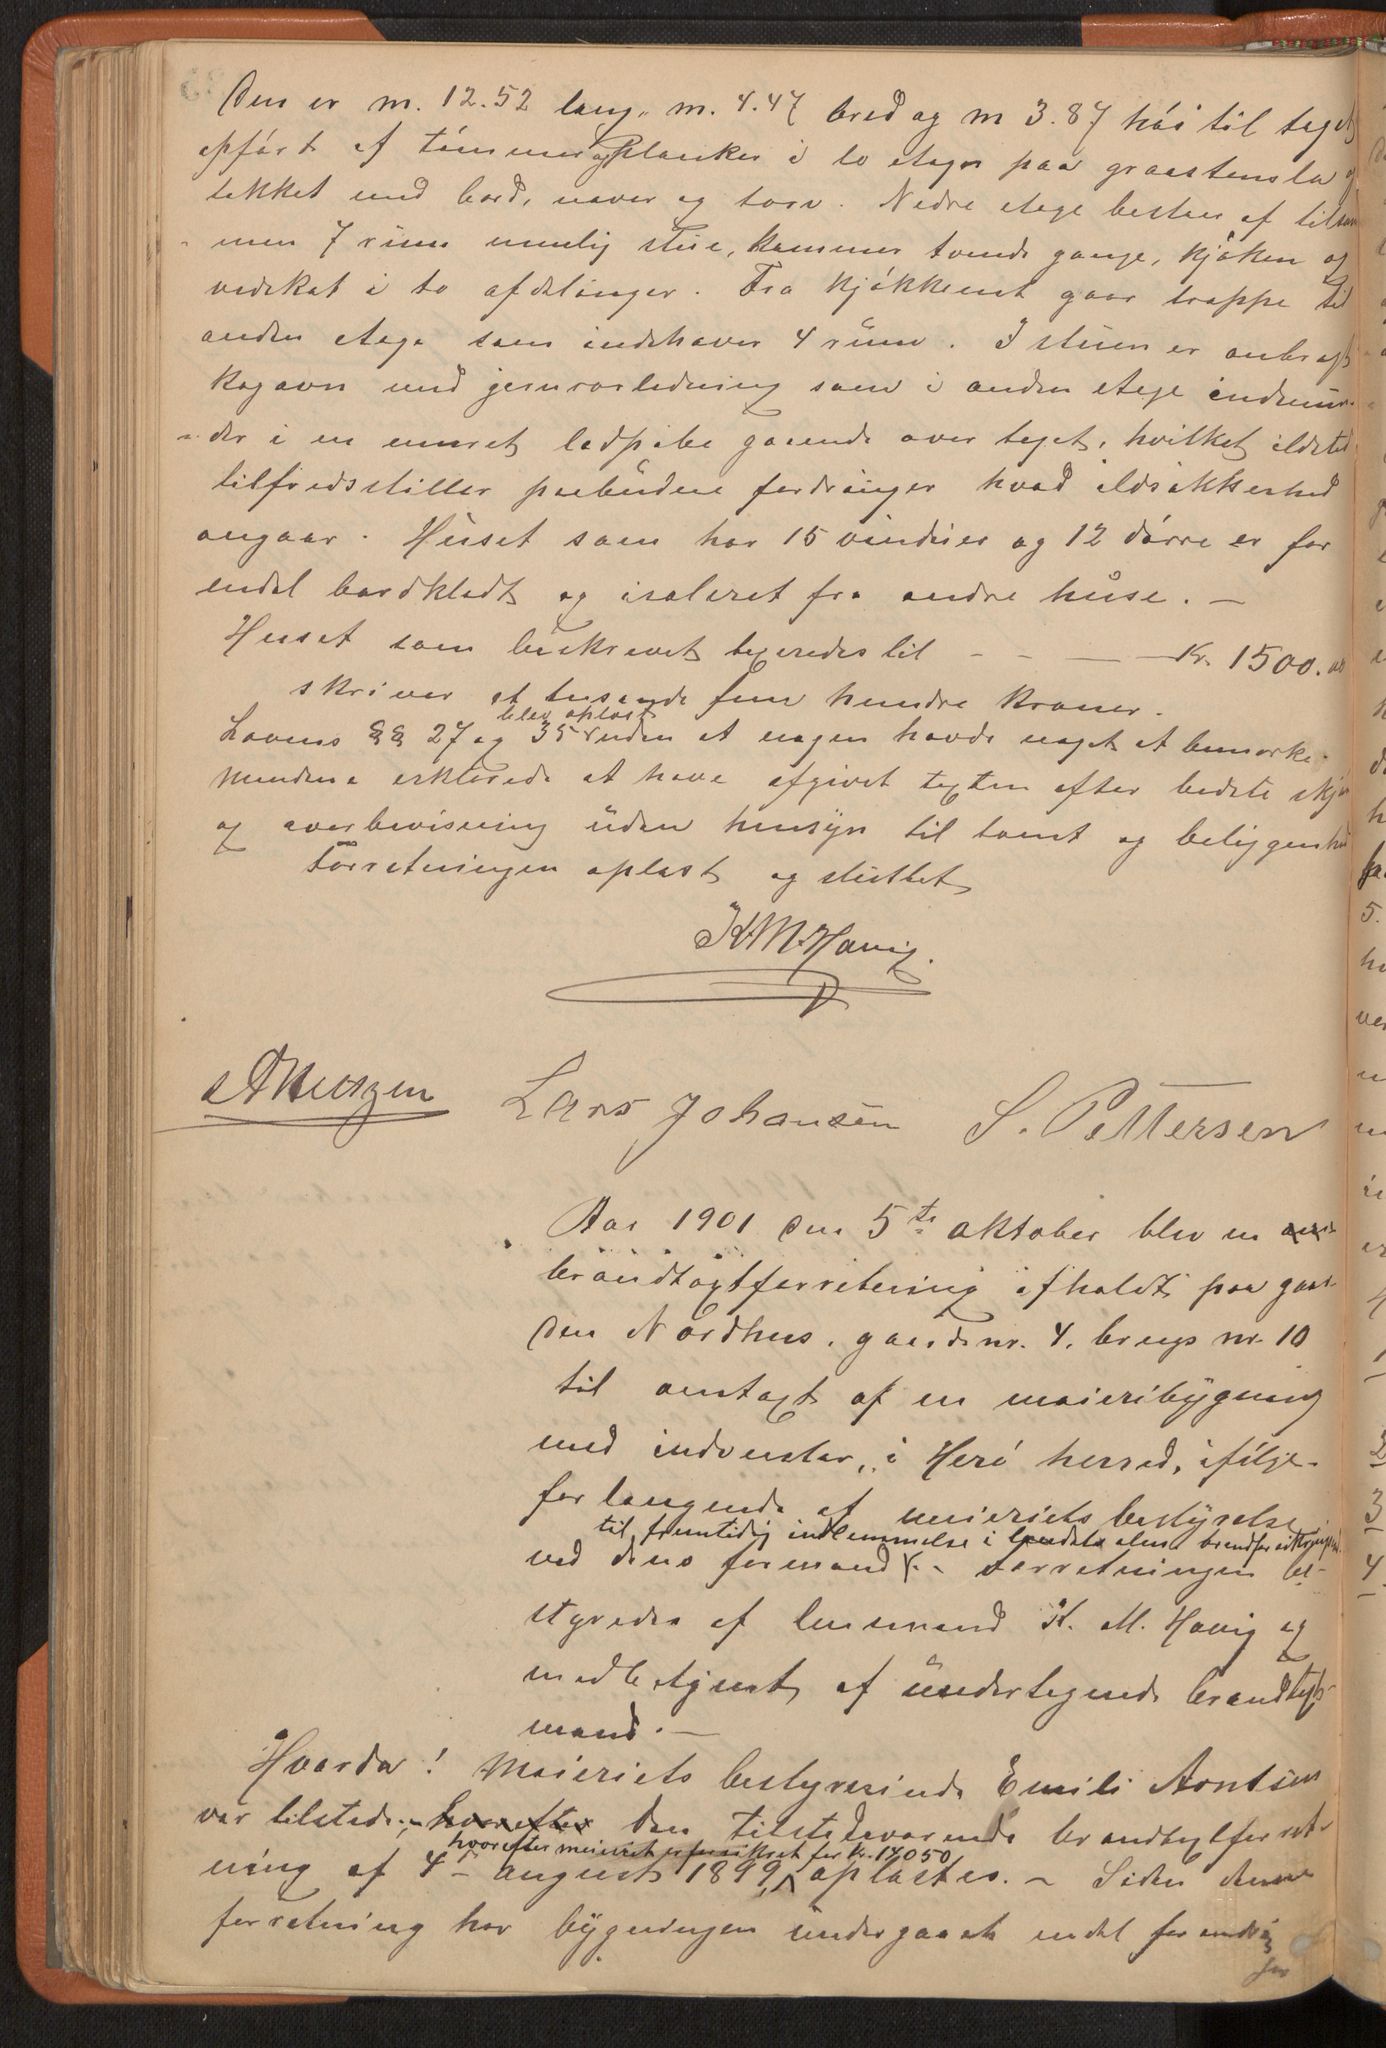 Den er m. 12.52 lang, m. 4.47 bred og m 3.87 høi til taget
opført af tømmer og Planker i to etager paa graastensla og
tekket med bord, never og torv. Nedre etage bestaar af tilsam
men 7 rum nemlig stue, kammer tvende gange, kjøken og
vedskot i to afdelinger. Fra kjøkkenet gaar trappe til
anden etage som indehaver 4 rum. I stuen er anbragt
kogovn med jernrørledning som i anden etage indmun
der i en muret ledpibe gaaende over taget, hvilket ildsted
tilfredsstiller paabudene fordringer hvad ildsikkerhed
angaar. Huset som har 15 vinduer og 12 dørre er for
endel bordkledt og isoleret fra andre huse. —
Huset som beskrevet taxeredes til - - — — Kr. 1500.00
skriver et tusende fem hundre kroner.
blev oplæst
Lovens §§ 27 og 35 uden at nogen havde noget at bemærke.
Mendene erklærede at have afgivet taxten efter bedste skjøn
og overbevisning uden hensyn til tomt og beliggenhed
Forretningen oplæst og sluttet
K. M. Havig.
Lars Johansen S. Pettersen
Aar 1901 den 5te oktober blev en
brandtaxtforretning afholdt paa gaar
den Nordhus, gaardsnr. 4, brugs nr. 10
til omtaxt af en meieribygning
med indventar, i Herø herred, ifølge
forlangende af meieriets bestyrelse
til fremtidig indlemmelse i
ved dens formand. Forretningen be-
styredes af lensmand K. M. Havig og
medbetjent af undertegnede brandtaxt
mænd. —
Hvorda! Meieriets bestyrerinde Emili Arntsen
var tilstede, hvorefter den tilstedeværende brandtaxtforret
hvorefter meieriet er forsikret for kr. 14050
ning af 4de august 1899, oplæstes. — Siden denne
forretning har bygningen undergaaet endel forandrin
ger